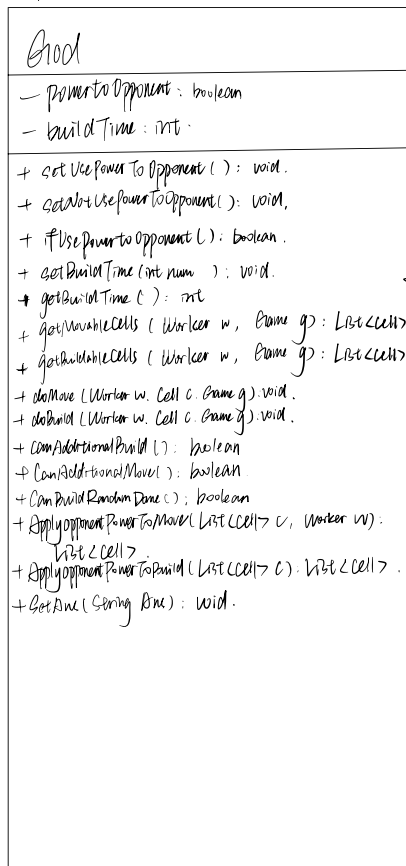 God
- powertoOpponent : boolean
- buildTime : int
+ setUsePowerToOpponent ( ) : void.
+ setNotUsePowerToOpponent( ) : void.
+ ifUsePowertoOpponent ( ) : boolean.
+ setBuildTime (int num ) : void.
+ getBuildTime ( ) : int
+ getMovableCells ( Worker w, Game g) : List<Cell>
+ getBuildableCells ( Worker w, Game g) : List<Cell>
+ doMove (Worker w. Cell c. Game g). void.
+ doBuild (Worker w. Cell c. Game g). void.
+ canAdditionalBuild ( ) : boolean
+ CanAdditionalMove ( ) : boolean
+ CanBuildRandomDome ( ) ; boolean
+ ApplyopponentPowerToMove (List<Cell> c, Worker w) :
List<cell>.
+ ApplyopponentPowerToBuild (List<Cell> c) : List<cell>.
+ Set (String ) : void.